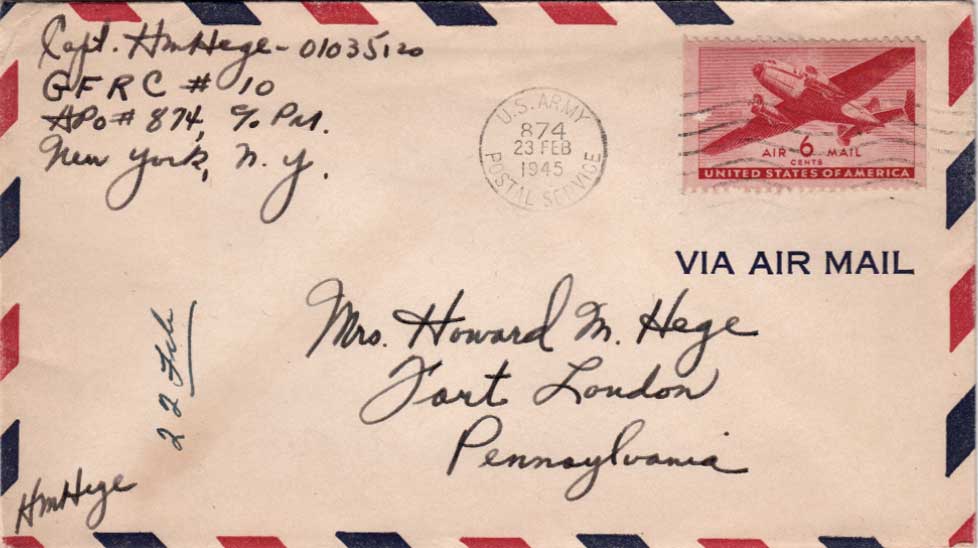 Capt. HmHege - 01035120
GFRC # 10
APO # 874, c/o PM.
New York, N. Y.
U.S. ARMY
874
23 FEB
1945
POSTAL SERVICE
AIR 6 MAIL
CENTS
UNITED STATES OF AMERICA
VIA AIR MAIL
Mrs. Howard M. Hege
Fort Loudon
Pennsylvania
22 Feb
HmHege